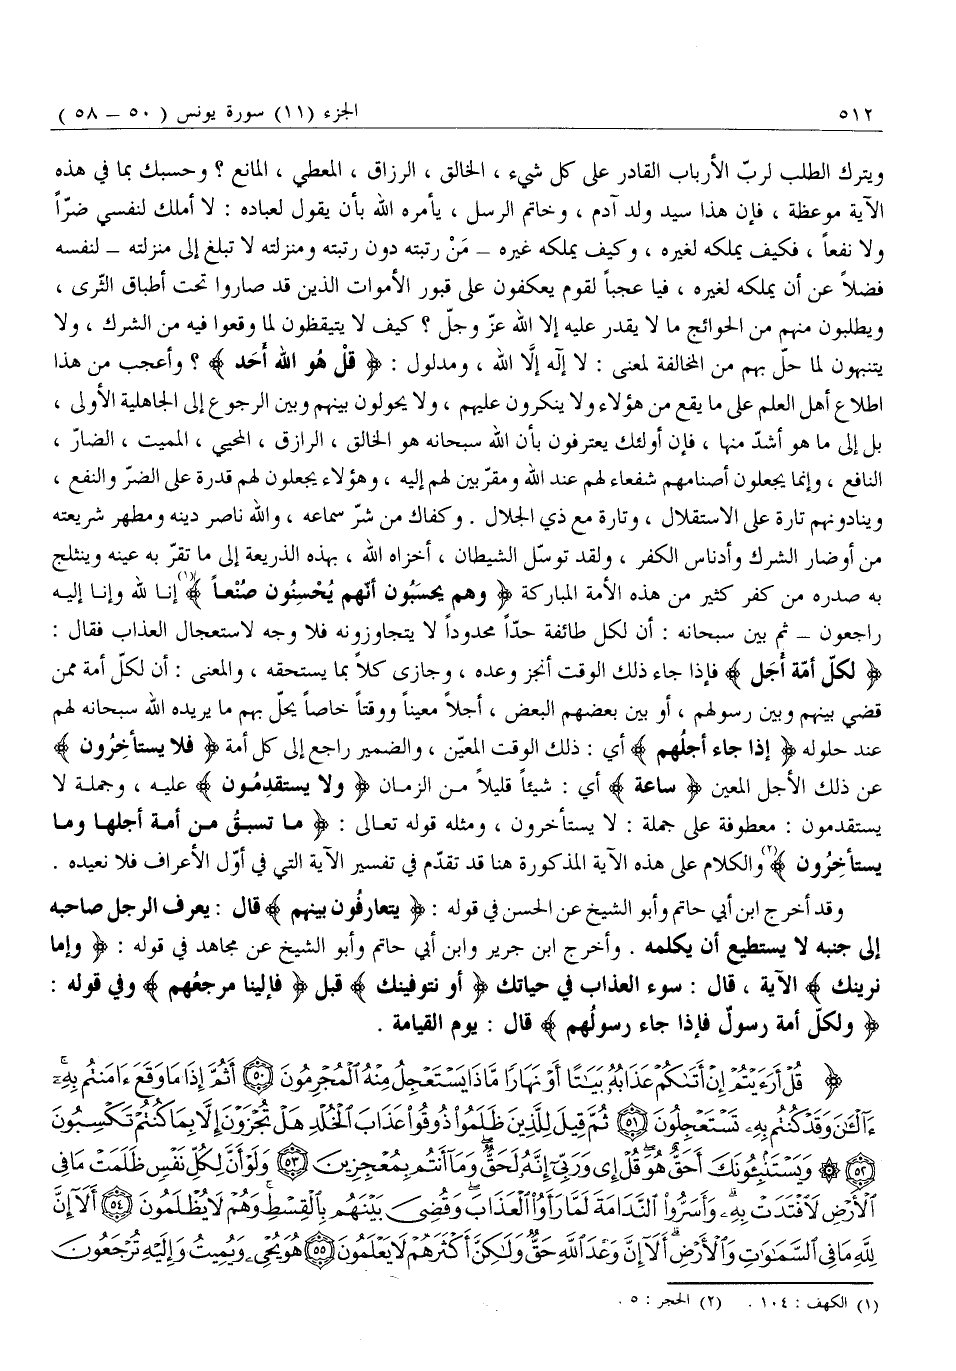 ٥١٢ الجزء (١١) سورة يونس ( ٥٠ ــ ٥٨ )
ويترك الطلب لربّ الأرباب القادر على كل شيء ، الخالق ، الرزاق ، المعطي ، المانع ؟ وحسبك بما في هذه
الآية موعظة ، فإن هذا سيد ولد آدم ، وخاتم الرسل ، يأمره الله بأن يقول لعباده : لا أملك لنفسي ضرّاً
ولا نفعاً ، فكيف يملكه لغيره ، وكيف يملكه غيره ــ مَنْ رتبته دون رتبته ومنزلته لا تبلغ إلى منزلته ــ لنفسه
فضلاً عن أن يملكه لغيره ، فيا عجباً لقوم يعكفون على قبور الأموات الذين قد صاروا تحت أطباق الثّرى ،
ويطلبون منهم من الحوائج ما لا يقدر عليه إلا الله عزّ وجلّ ؟ كيف لا يتيقظون لما وقعوا فيه من الشرك ، ولا
يتنبهون لما حلّ بهم من المخالفة لمعنى : لا إلٰه إلَّا الله ، ومدلول : ﴿ قلْ هُو اللهُ أَحَد ﴾ ؟ وأعجب من هذا
اطلاع أهل العلم على ما يقع من هؤلاء ولا ينكرون عليهم ، ولا يحولون بينهم وبين الرجوع إلى الجاهلية الأولى ،
بل إلى ما هو أشدّ منها ، فإن أولئك يعترفون بأن الله سبحانه هو الخالق ، الرازق ، المحيي ، المميت ، الضارّ ،
النافع ، وإنما يجعلون أصنامهم شفعاء لهم عند الله ومقرّبين لهم إليه ، وهؤلاء يجعلون لهم قدرة على الضرّ والنفع ،
وينادونهم تارة على الاستقلال ، وتارة مع ذي الجلال . وكفاك من شرّ سماعه ، والله ناصر دينه ومطهر شريعته
من أوضار الشرك وأدناس الكفر ، ولقد توسّل الشيطان ، أخزاه الله ، بهذه الذريعة إلى ما تقرّ به عينه وينثلج
به صدره من كفر كثير من هذه الأمة المباركة ﴿ وهم يحسَبُون أنّهم يُحْسِنُون صُنْعاً ﴾(١) إنا لله وإنا إليه
راجعون ــ ثم بين سبحانه : أن لكل طائفة حدّاً محدوداً لا يتجاوزونه فلا وجه لاستعجال العذاب فقال :
﴿ لكلّ أمّة أَجَل ﴾ فإذا جاء ذلك الوقت أنجز وعده ، وجازى كلاً بما يستحقه ، والمعنى : أن لكلّ أمة ممن
قضي بينهم وبين رسولهم ، أو بين بعضهم البعض ، أجلاً معيناً ووقتاً خاصاً يحلّ بهم ما يريده الله سبحانه لهم
عند حلوله ﴿ إذا جاء أجلُهم ﴾ أي : ذلك الوقت المعيّن ، والضمير راجع إلى كل أمة ﴿ فلا يستأخِرُون ﴾
عن ذلك الأجل المعين ﴿ ساعة ﴾ أي : شيئاً قليلاً من الزمان ﴿ ولا يستقدِمُون ﴾ عليه ، وجملة لا
يستقدمون : معطوفة على جملة : لا يستأخرون ، ومثله قوله تعالى : ﴿ ما تسبقُ من أمة أجلها وما
يستأخِرُون ﴾(٢) والكلام على هذه الآية المذكورة هنا قد تقدّم في تفسير الآية التي في أوّل الأعراف فلا نعيده .
وقد أخرج ابن أبي حاتم وأبو الشيخ عن الحسن في قوله : ﴿ يتعارفُون بينهم ﴾ قال : يعرف الرجل صاحبه
إلى جنبه لا يستطيع أن يكلمه . وأخرج ابن جرير وابن أبي حاتم وأبو الشيخ عن مجاهد في قوله : ﴿ وإما
نرينك ﴾ الآية ، قال : سوء العذاب في حياتك ﴿ أو نتوفينك ﴾ قبل ﴿ فإلينا مرجعُهم ﴾ وفي قوله :
﴿ ولكلّ أمة رسولٌ فإذا جاء رسولُهم ﴾ قال : يوم القيامة .
﴿ قُلْ أَرَءَيْتُمْ إِنْ أَتَىٰكُمْ عَذَابُهُۥ بَيَٰتًا أَوْ نَهَارًا مَّاذَا يَسْتَعْجِلُ مِنْهُ ٱلْمُجْرِمُونَ ٥٠ أَثُمَّ إِذَا مَا وَقَعَ ءَامَنتُم بِهِۦٓ
ءَآلْـَٰٔنَ وَقَدْ كُنتُم بِهِۦ تَسْتَعْجِلُونَ ٥١ ثُمَّ قِيلَ لِلَّذِينَ ظَلَمُوا۟ ذُوقُوا۟ عَذَابَ ٱلْخُلْدِ هَلْ تُجْزَوْنَ إِلَّا بِمَا كُنتُمْ تَكْسِبُونَ
٥٢ ۞ وَيَسْتَنۢبِـُٔونَكَ أَحَقٌّ هُوَ ۖ قُلْ إِى وَرَبِّىٓ إِنَّهُۥ لَحَقٌّ ۖ وَمَآ أَنتُم بِمُعْجِزِينَ ٥٣ وَلَوْ أَنَّ لِكُلِّ نَفْسٍ ظَلَمَتْ مَا فِى
ٱلْأَرْضِ لَٱفْتَدَتْ بِهِۦ ۗ وَأَسَرُّوا۟ ٱلنَّدَامَةَ لَمَّا رَأَوُا۟ ٱلْعَذَابَ ۖ وَقُضِىَ بَيْنَهُم بِٱلْقِسْطِ ۚ وَهُمْ لَا يُظْلَمُونَ ٥٤ أَلَآ إِنَّ
لِلَّهِ مَا فِى ٱلسَّمَٰوَٰتِ وَٱلْأَرْضِ ۗ أَلَآ إِنَّ وَعْدَ ٱللَّهِ حَقٌّ وَلَٰكِنَّ أَكْثَرَهُمْ لَا يَعْلَمُونَ ٥٥ هُوَ يُحْىِۦ وَيُمِيتُ وَإِلَيْهِ تُرْجَعُونَ
(١) الكهف : ١٠٤ . (٢) الحجر : ٥ .